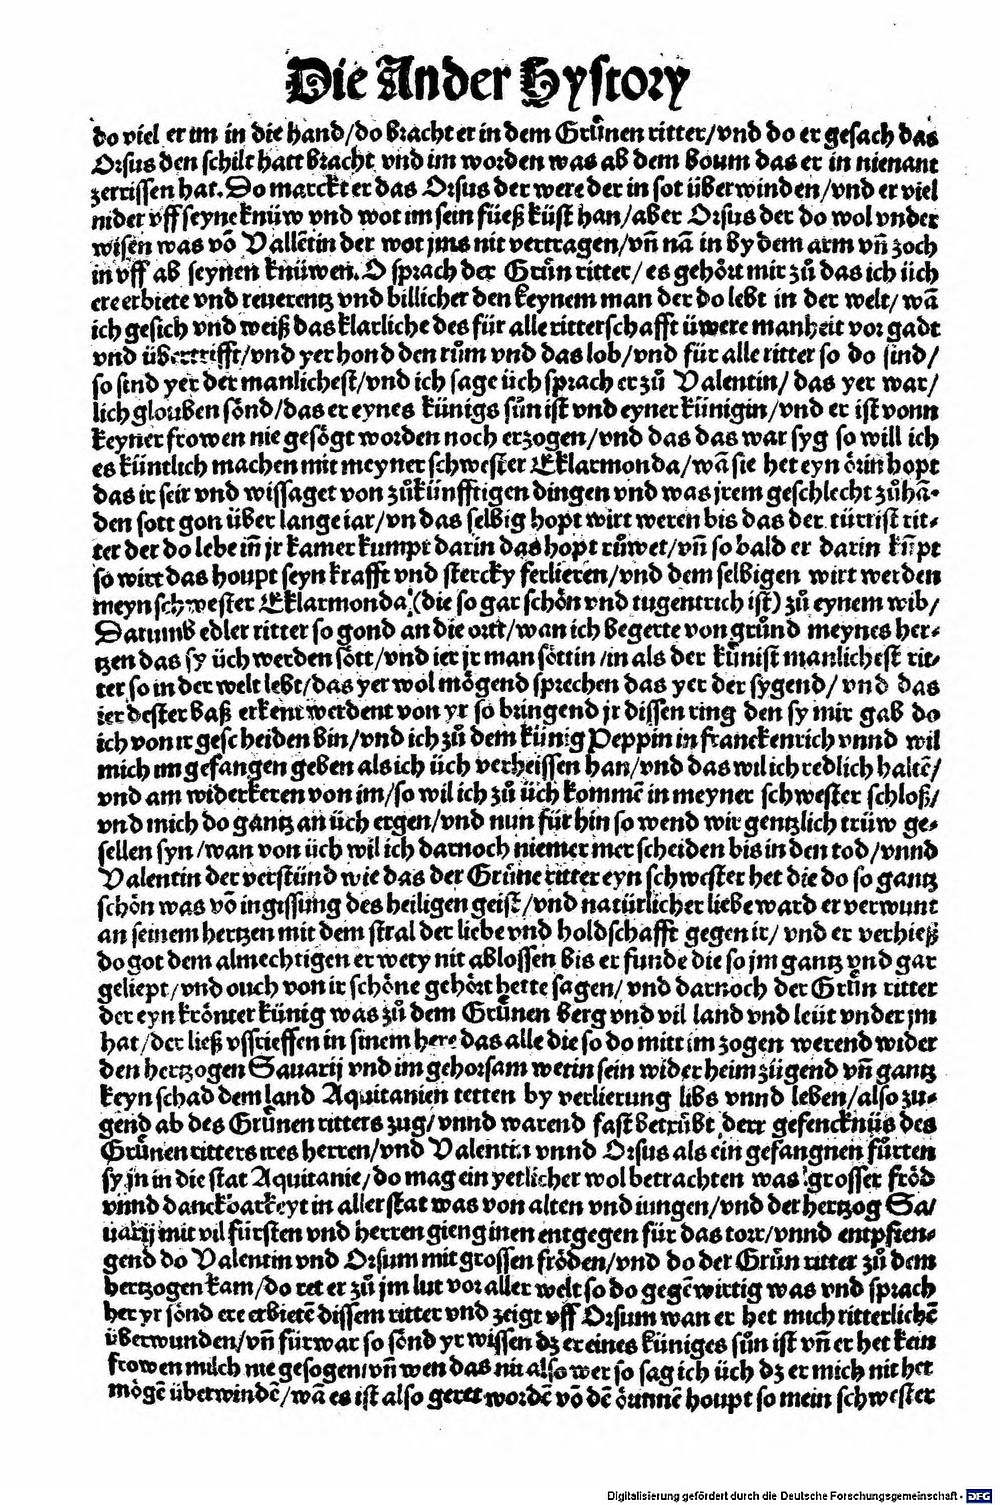 Die Ander Hystory
do viel er im in die hand/do bracht er in dem Grůnen ritter/vnd do er gesach das
Orsus den schilt hatt bracht vnd im worden was ab dem boum das er in nienant
zerrissen hat. Do marckt er das Orsus der were der in sot überwinden/vnd er viel
nider vff seyne knüw vnd wot im sein füeß küst han/aber Orsus der do wol vnder
wisen was võ Vallẽtin der wot jms nit vertragen/vñ nã in by dem arm vñ zoch
in vff ab seynen knüwen. O sprach der Grůn ritter/ es gehört mir zů das ich üch
ere erbiete vnd reuerentz vnd billicher den keynem man der do lebt in der welt/ wã
ich gesich vnd weiß das klarliche des für alle ritterschafft üwere manheit vor gadt
vnd übertrifft/vnd yer hond den rům vnd das lob/vnd für alle ritter so do sind/
so sind yer der manlichest/vnd ich sage üch sprach er zů Valentin/ das yer war/
lich glouben sönd/das er eynes künigs sůn ist vnd eyner künigin/vnd er ist vonn
keyner frowen nie gesögt worden noch erzogen/vnd das das war syg so will ich
es küntlich machen mit meyner schwester Eklarmonda/wã sie het eyn örin hopt
das ir seit vnd wissaget von zůkünfftigen dingen vnd was jrem geschlecht zůhã-
den sott gon über lange iar/vn das selbig hopt wirt weren bis das der türrist rit-
ter der do lebe iñ jr kamer kumpt darin das hopt růwet/vñ so bald er darin kũpt
so wirt das houpt seyn krafft vnd stercky ferlieren/vnd dem selbigen wirt werden
meyn schwester Eklarmonda (die so gar schön vnd tugentrich ist) zů eynem wib/
Darumb edler ritter so gond an die ortt/wan ich begerte von grůnd meynes her-
tzen das sy üch werden sött/vnd ier jr man söttin /in als der künist manlichest rit-
ter so in der welt lebt/das yer wol mögend sprechen das yer der sygend/ vnd das
ier dester baß erkent werdent von yr so bringend jr dissen ring den sy mir gab do
ich von ir gescheiden bin/vnd ich zů dem künig Peppin in franckenrich vnnd wil
mich im gefangen geben als ich üch verheissen han/vnd das wil ich redlich haltẽ/
vnd am widerkeren von im/so wil ich zů üch kommẽ in meyner schwester schloß/
vnd mich do gantz an üch ergen/vnd nun für hin so wend wir gentzlich trüw ge-
sellen syn/wan von üch wil ich darnoch niemer mer scheiden bis in den tod/vnnd
Valentin der verstünd wie das der Grüne ritter eyn schwester het die do so gantz
schön was võ ingissung des heiligen geist/vnd natürlicher liebe ward er verwunt
an seinem hertzen mit dem stral der liebe vnd holdschafft gegen ir/ vnd er verhieß
do got dem almechtigen er wety nit ablossen bis er funde die so jm gantz vnd gar
geliept/vnd ouch von ir schöne gehört hette sagen/ vnd darnoch der Grůn ritter
der eyn krönter künig was zů dem Grůnen berg vnd vil land vnd leüt vnder jm
hat/der ließ vssrieffen in sinem here das alle die so do mitt im zogen werend wider
den hertzogen Sauarij vnd im gehorsam werin sein wider heim zügend vñ gantz
keyn schad dem land Aquitanien tetten by verlierung libs vnnd leben/also zu-
gend ab des Grůnen ritters zug/vnnd warend fast betrůbt derr gefencknüs des
Grůnen ritters ires herren/vnd Valentin vnnd Orsus als ein gefangnen fůrten
sy jn in die stat Aquitanie/do mag ein yetlicher wol betrachten was grosser fröd
vnnd danckbarkeyt in aller stat was von alten vnd iungen/vnd der hertzog Sa/
uarij mit vil fürsten vnd herren gieng inen entgegen für das torr/vnnd entpfien-
gend do Valentin vnd Orsum mit grossen fröden/vnd do der Grůn ritter zů dem
hertzogen kam/do ret er zů jm lut vor aller welt so do gegẽwirtig was vnd sprach
her yr sönd ere erbietẽ dissem ritter vnd zeigt vff Orsum wan er het mich ritterlichẽ
überwunden/vñ fürwar so sönd yr wissen dz er eines küniges sůn ist vñ er het kein
frowen milch nie gesogen/vñ wen das nit also wer so sag ich üch dz er mich nit het
mögẽ überwindẽ/wã es ist also geret wordẽ võ dẽ örinnẽ houpt so mein schwester
Digitalisierung gefördert durch die Deutsche Forschungsgemeinschaft - DFG